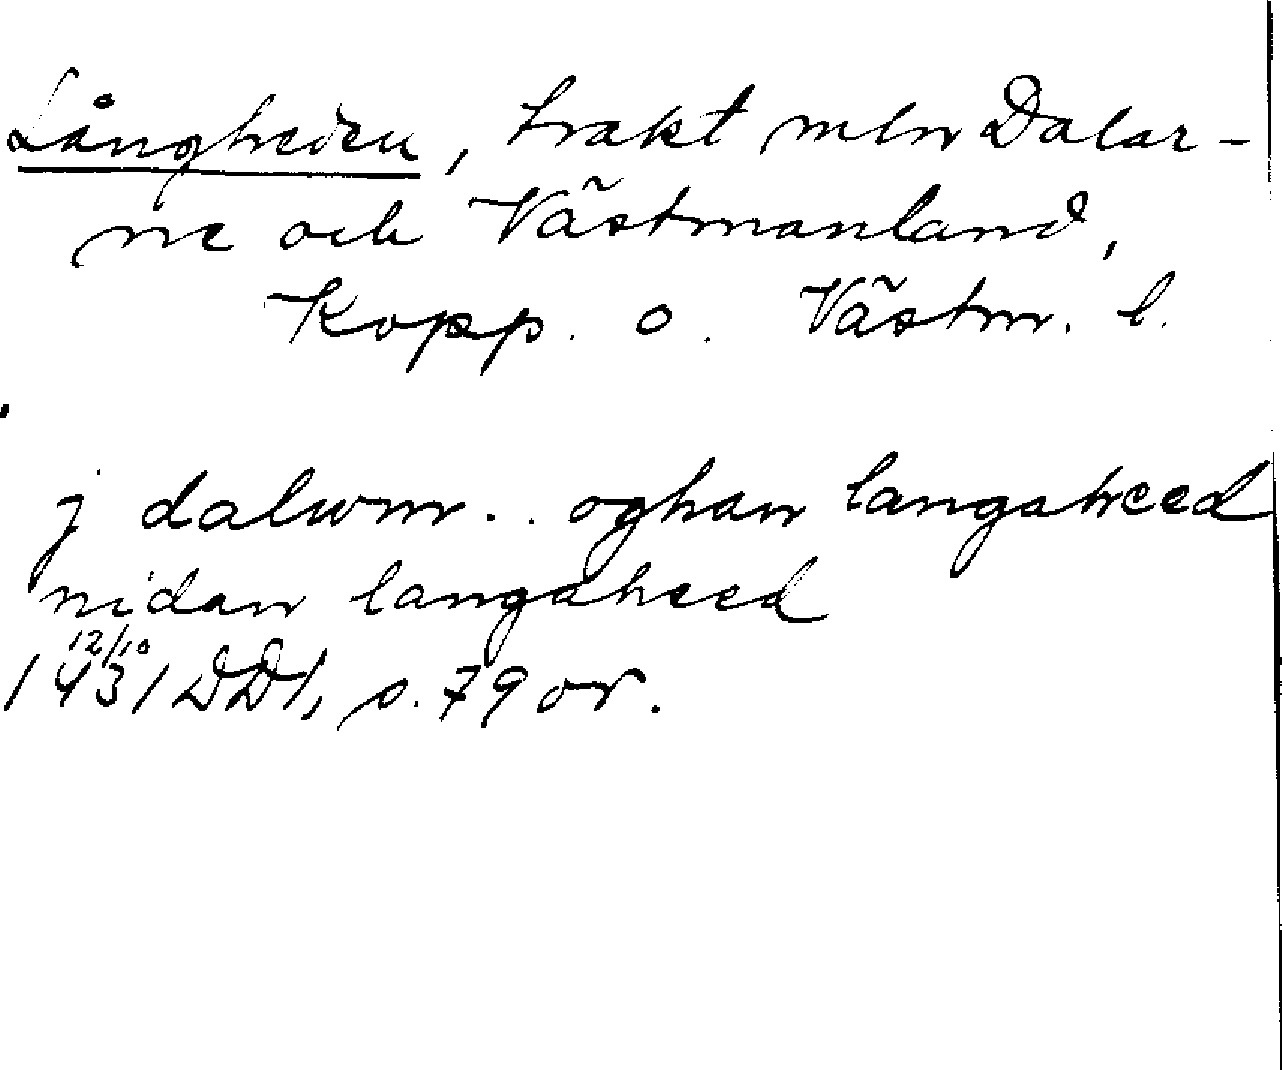 Långheden, trakt mln Dalar-
ne och Västmanland,
Kopp. o. Västm. l.
j dalwm .. oghan langaheed
nidan langaheed
12/10
1431 DD1, s. 79 or.